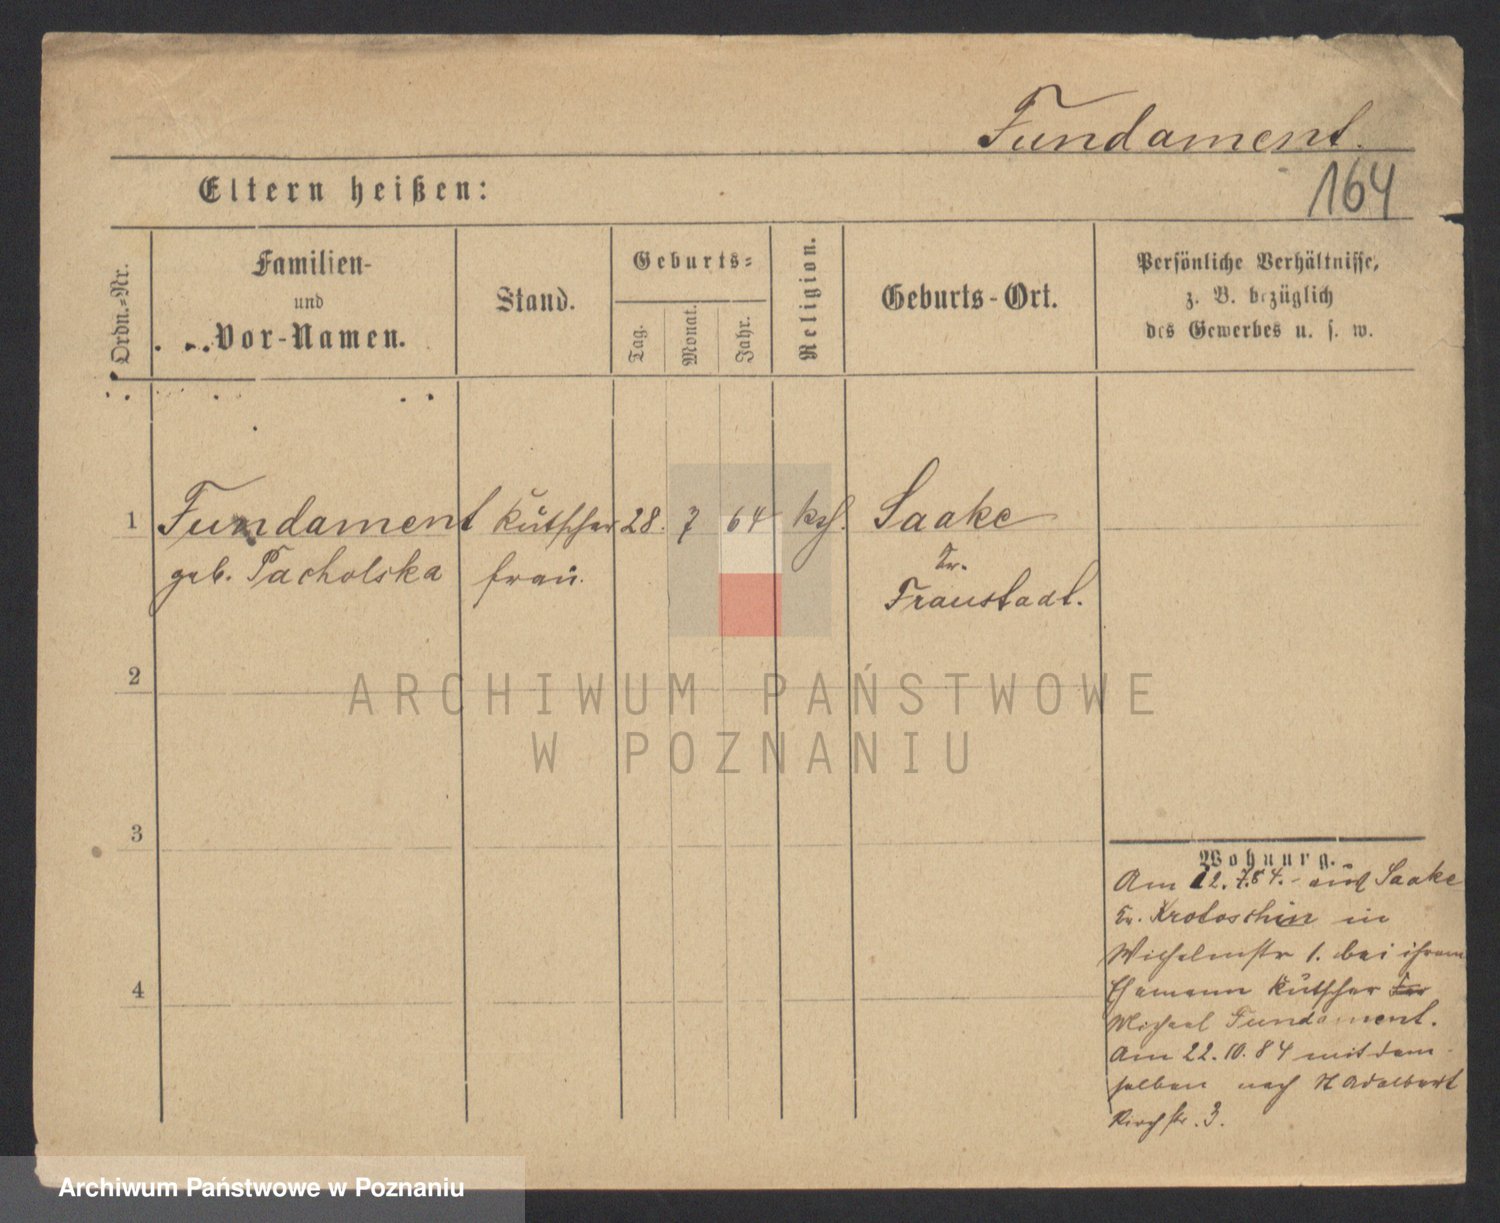 Fundament.
164
Eltern heißen:
Ordn.-Nr.
Familien-
und
Vor-Namen.
Stand.
Geburts-
Tag.
Monat.
Jahr.
Religion.
Geburts-Ort.
Persönliche Verhältnisse,
z. B. bezüglich
des Gewerbes u. s. w.
1
Fundament
geb. Pacholska
Kutscher
frau.
28. 7 64
Saake
Kr.
Fraustadt.
2
3
4
Wohnung.
Am 12.7.84. aus Saake
Kr. Krotoschin in
Wilhelmstr 1. bei ihrem
Ehemann Kutscher
Michael Fundament.
Am 22.10.84 mit dem
selben nach Adalbert
Kirchstr. 3.
ARCHIWUM PAŃSTWOWE
W POZNANIU
Archiwum Państwowe w Poznaniu